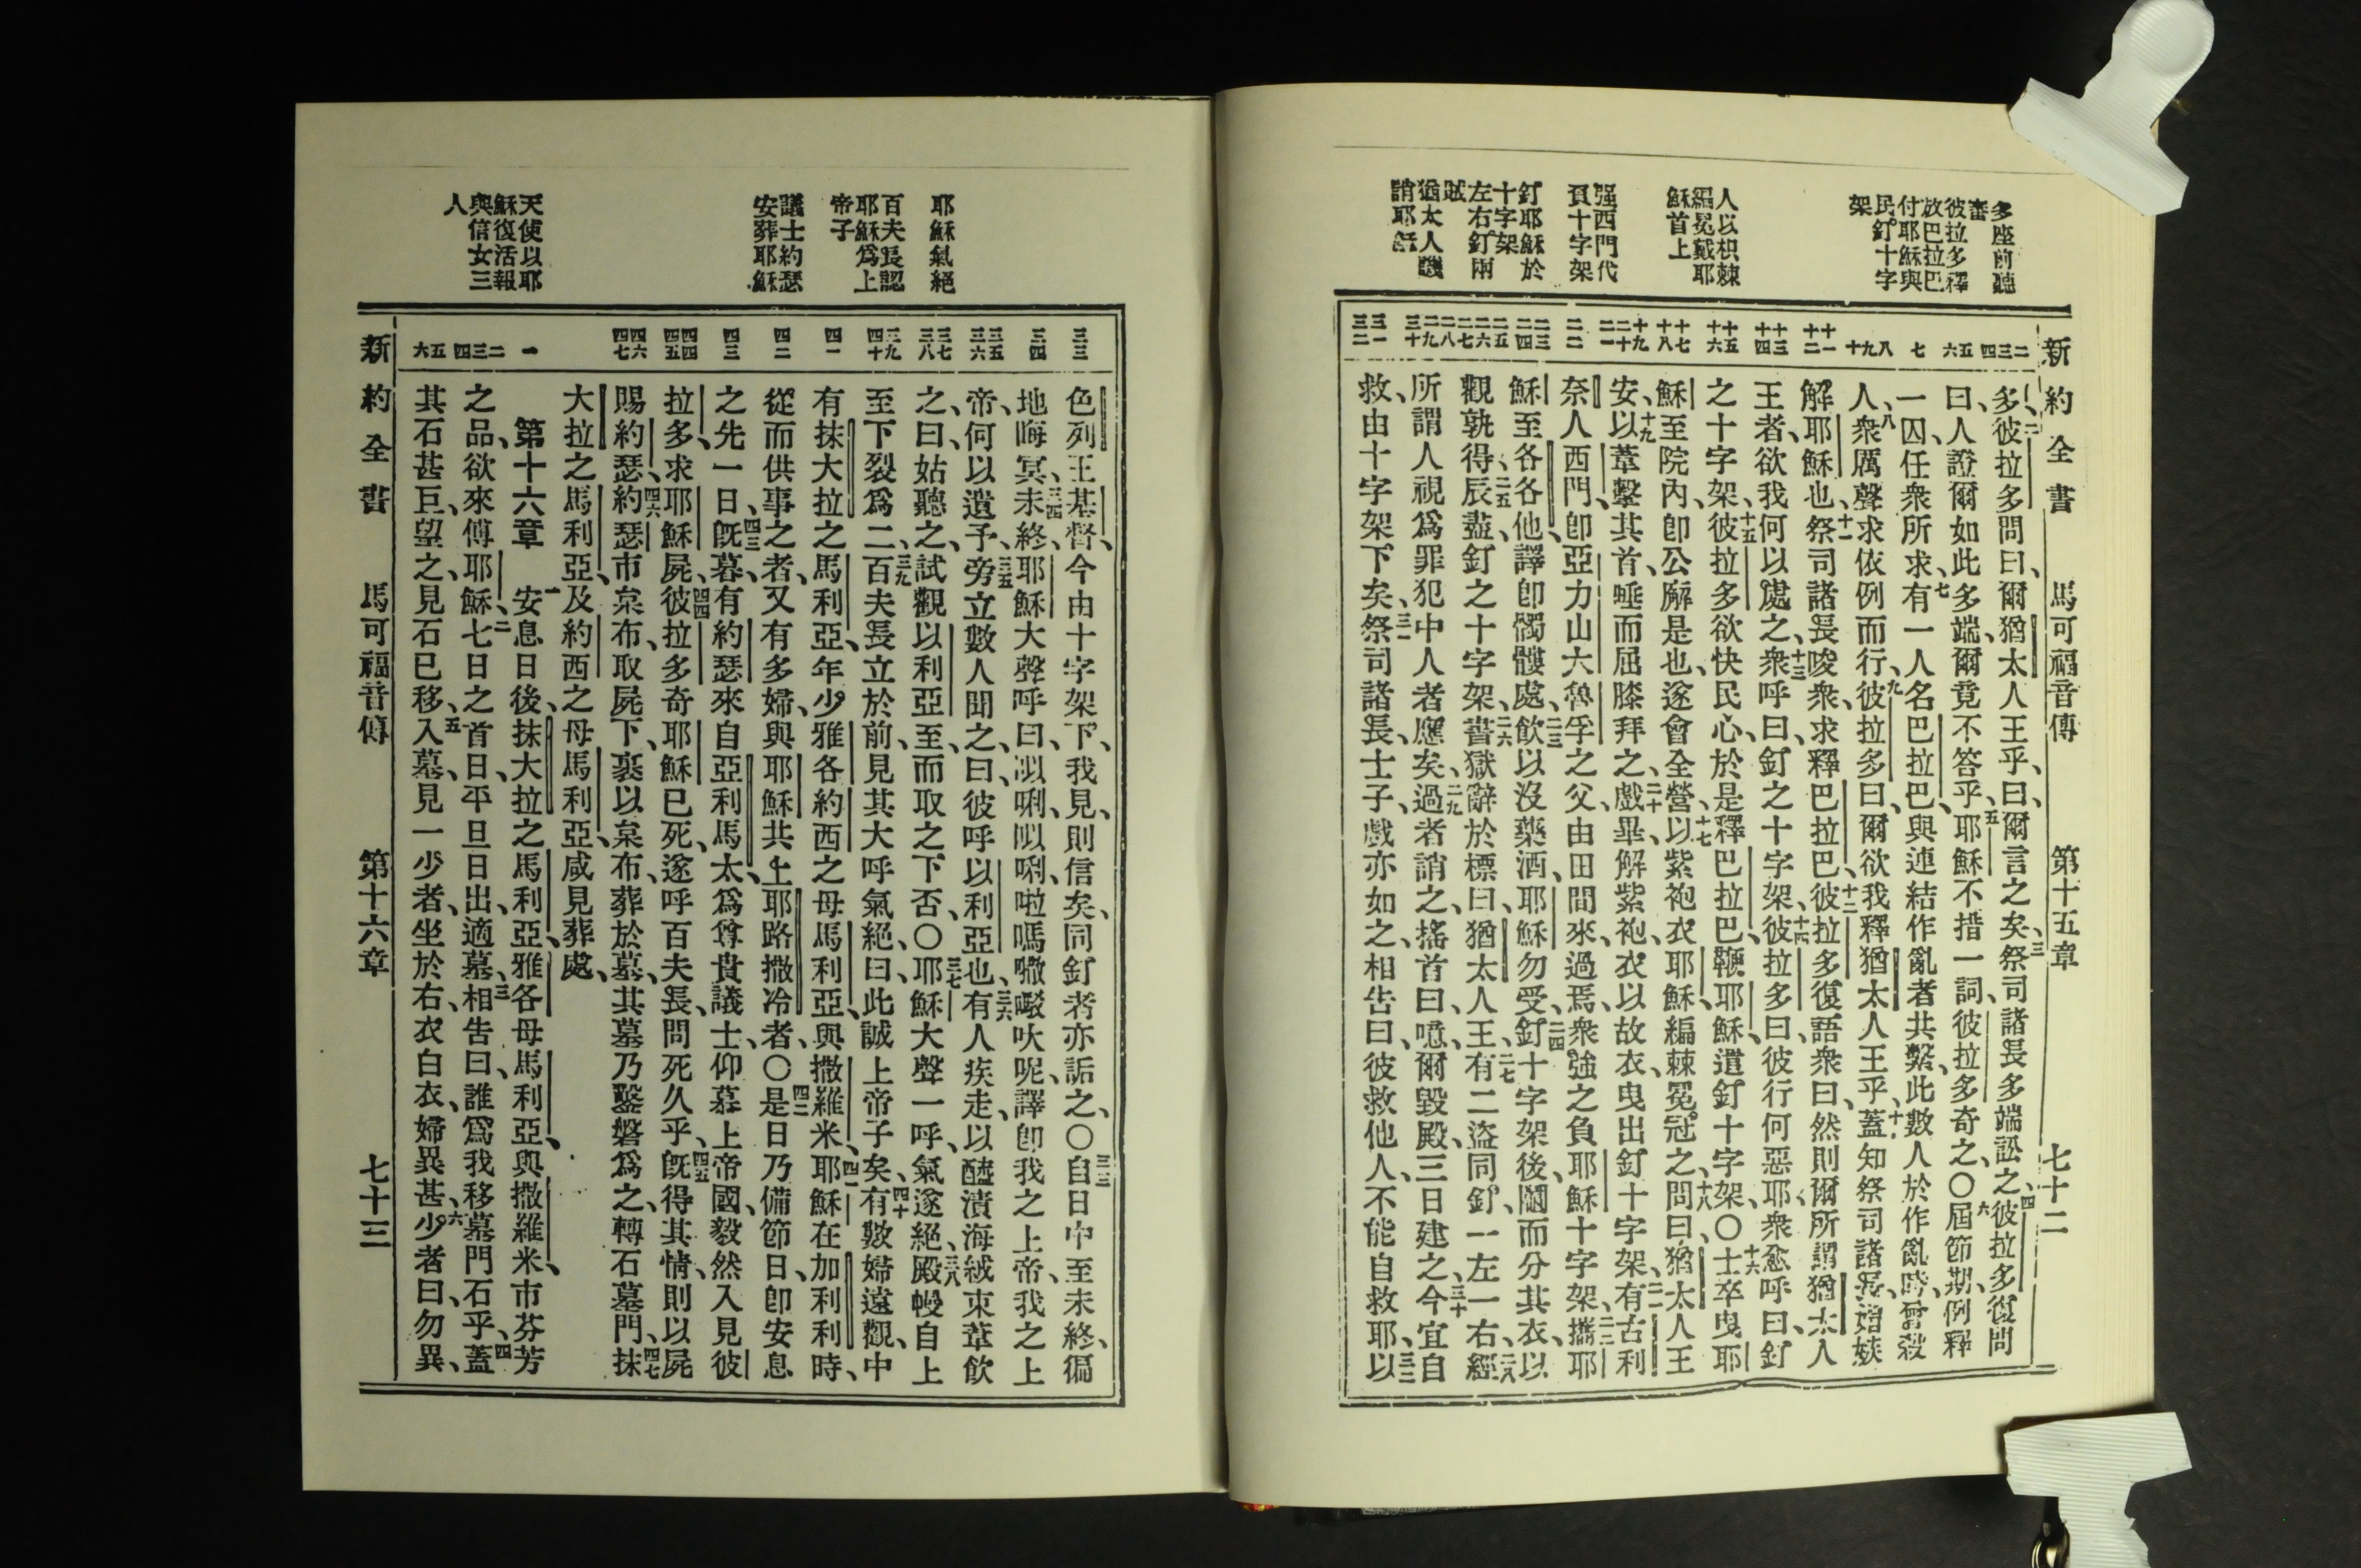 多座前聽
審
彼拉多釋
放巴拉巴
付耶穌與
民釘十字
架
人以枳棘
編冕戴耶
穌首上
强西門代
負十字架
釘耶穌於
十字架
左右釘兩
賊
猶太人譏
誚耶穌
新約全書 馬可福音傳 第十五章 七十二
二 三 四 五 六 七 八 九 十 十一 十二 十三 十四 十五 十六 十七 十八 十九 二十 二一 二二 二三 二四 二五 二六 二七 二八 二九 三十 三一 三二
多、二彼拉多問曰、爾猶太人王乎、曰、爾言之矣、三祭司諸長多端訟之、四彼拉多復問
曰、人證爾如此多端、爾竟不答乎、五耶穌不措一詞、彼拉多奇之、〇六屆節期、例釋
一囚、任衆所求、七有一人名巴拉巴、與連結作亂者共繫、此數人於作亂時、曾殺
人、八衆厲聲求依例而行、九彼拉多曰、爾欲我釋猶太人王乎、十蓋知祭司諸長、媢嫉
解耶穌也、十一祭司諸長唆衆、求釋巴拉巴、十二彼拉多復語衆曰、然則爾所謂猶太人
王者、欲我何以處之、十三衆呼曰、釘之十字架、十四彼拉多曰、彼行何惡耶、衆愈呼曰、釘
之十字架、十五彼拉多欲快民心、於是釋巴拉巴、鞭耶穌、遣釘十字架〇十六士卒曳耶
穌至院內、卽公廨是也、遂會全營、十七以紫袍衣耶穌、編棘冕冠之、十八問曰、猶太人王
安、十九以葦擊其首、唾而屈膝拜之、二十戲畢、解紫袍、衣以故衣、曳出釘十字架、二一有古利
奈人西門、卽亞力山大魯孚之父、由田間來、過焉、衆強之負耶穌十字架、二二攜耶
穌至各各他、譯卽髑髏處、二三飲以沒藥酒、耶穌勿受、二四釘十字架後、鬮而分其衣、以
觀孰得、二五辰盡、釘之十字架、二六書獄辭於標曰、猶太人王、二七有二盜同釘、一左一右、二八經
所謂人視爲罪犯中人者、應矣、二九過者誚之、搖首曰、噫、爾毀殿、三日建之、三十今宜自
救、由十字架下矣、三一祭司諸長士子、戲亦如之、相告曰、彼救他人、不能自救耶、三二以
耶穌氣絕
百夫長認
耶穌爲上
帝子
議士約瑟
安葬耶穌
天使以耶
穌復活報
與信女三
人
三三 三四 三五 三六 三七 三八 三九 四十 四一 四二 四三 四四 四五 四六 四七 一 二 三 四 五 六
色列王基督、今由十字架下、我見、則信矣、同釘者亦詬之、〇三三自日中至未終、徧
地晦冥、三四未終、耶穌大聲呼曰、以唎以唎、啦嗎嚨啜呔呢、譯卽我之上帝、我之上
帝、何以遺予、三五旁立數人聞之、曰、彼呼以利亞也、三六有人疾走、以醯漬海絨、束葦飲
之、曰、姑聽之、試觀以利亞至、而取之下否、〇三七耶穌大聲一呼、氣遂絕、三八殿幔自上
至下裂爲二、三九百夫長立於前、見其大呼氣絕、曰、此誠上帝子矣、四十有數婦遠觀、中
有抹大拉之馬利亞、年少雅各約西之母馬利亞、與撒羅米、四一耶穌在加利利時、
從而供事之者、又有多婦、與耶穌共上耶路撒冷者、〇四二是日乃備節日、卽安息
之先一日、四三旣暮、有約瑟來自亞利馬太、爲尊貴議士、仰慕上帝國、毅然入見彼
拉多、求耶穌屍、四四彼拉多奇耶穌已死、遂呼百夫長、問死久乎、四五旣得其情、則以屍
賜約瑟、四六約瑟市枲布、取屍下、裹以枲布、葬於墓、其墓乃鑿磐爲之、轉石墓門、四七抹
大拉之馬利亞、及約西之母馬利亞、咸見葬處、
第十六章 一安息日後、抹大拉之馬利亞、雅各母馬利亞、與撒羅米、市芬芳
之品、欲來傅耶穌、二七日之首日、平旦日出、適墓、三相告曰、誰爲我移墓門石乎、四蓋
其石甚巨、望之、見石已移、五入墓、見一少者、坐於右、衣白衣、婦異甚、六少者曰、勿異、
新約全書 馬可福音傳 第十六章 七十三